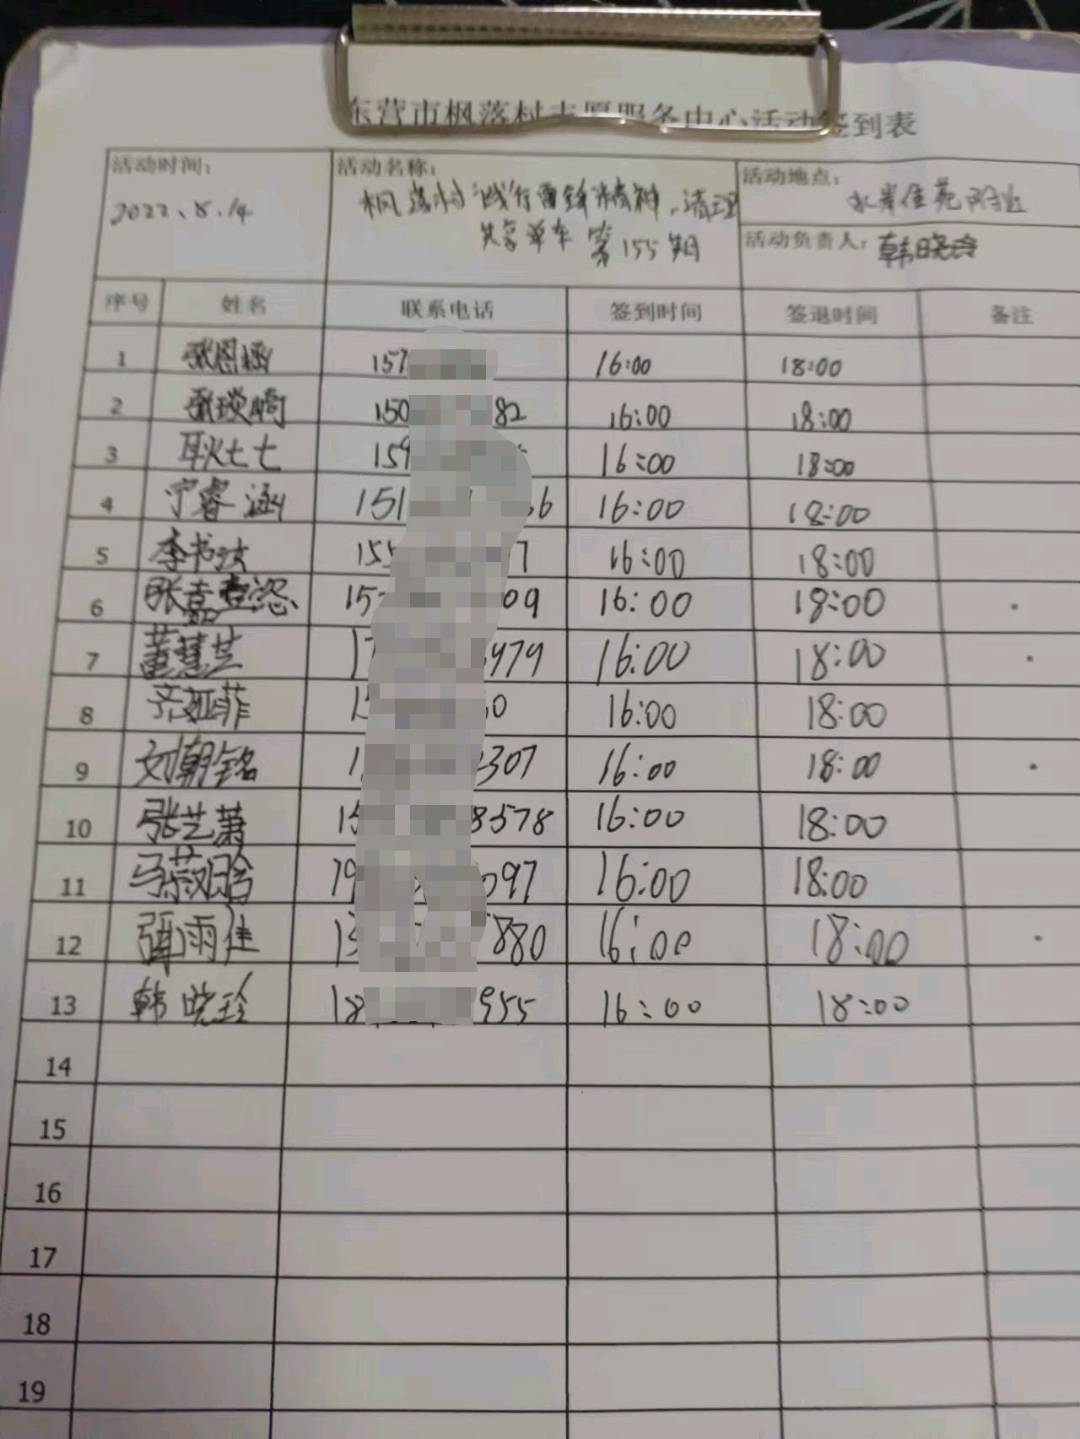 东营市枫落村志愿服务中心活动签到表
活动时间：
2022.8.14
活动名称：
枫落村践行雷锋精神，清理
共享单车 第155期
活动地点：
水岸佳苑附近
活动负责人：韩晓玲
序号 姓名 联系电话 签到时间 签退时间 备注
1 张恩涵 157 16:00 18:00
2 150 82 16:00 18:00
3 耿七七 159 16:00 18:00
4 宁睿涵 151 66 16:00 18:00
5 155 7 16:00 18:00
6 15 09 16:00 18:00
7 董慧芸 17 979 16:00 18:00
8 齐娅菲 15 0 16:00 18:00
9 刘朝铭 1 307 16:00 18:00
10 张艺萧 15 8578 16:00 18:00
11 19 097 16:00 18:00
12 雨佳 15 880 16:00 18:00
13 韩晓玲 18 955 16:00 18:00
14
15
16
17
18
19